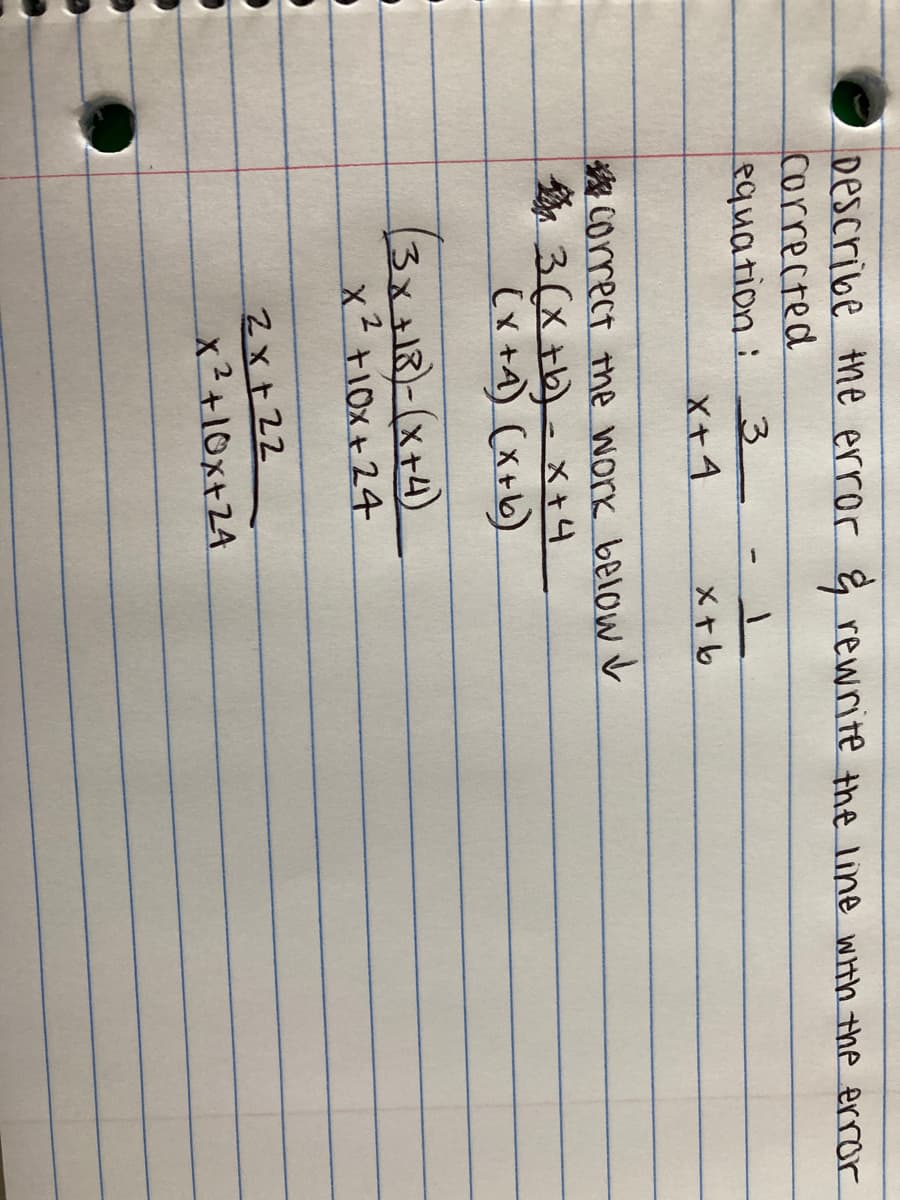 Describe the error & rewrite the line with the error
corrected
equation: 3/(x+4) - 1/(x+6)
correct the work below ↓
(3(x+6) - x+4)/((x+4)(x+6))
((3x+18)-(x+4))/(x²+10x+24)
(2x+22)/(x²+10x+24)